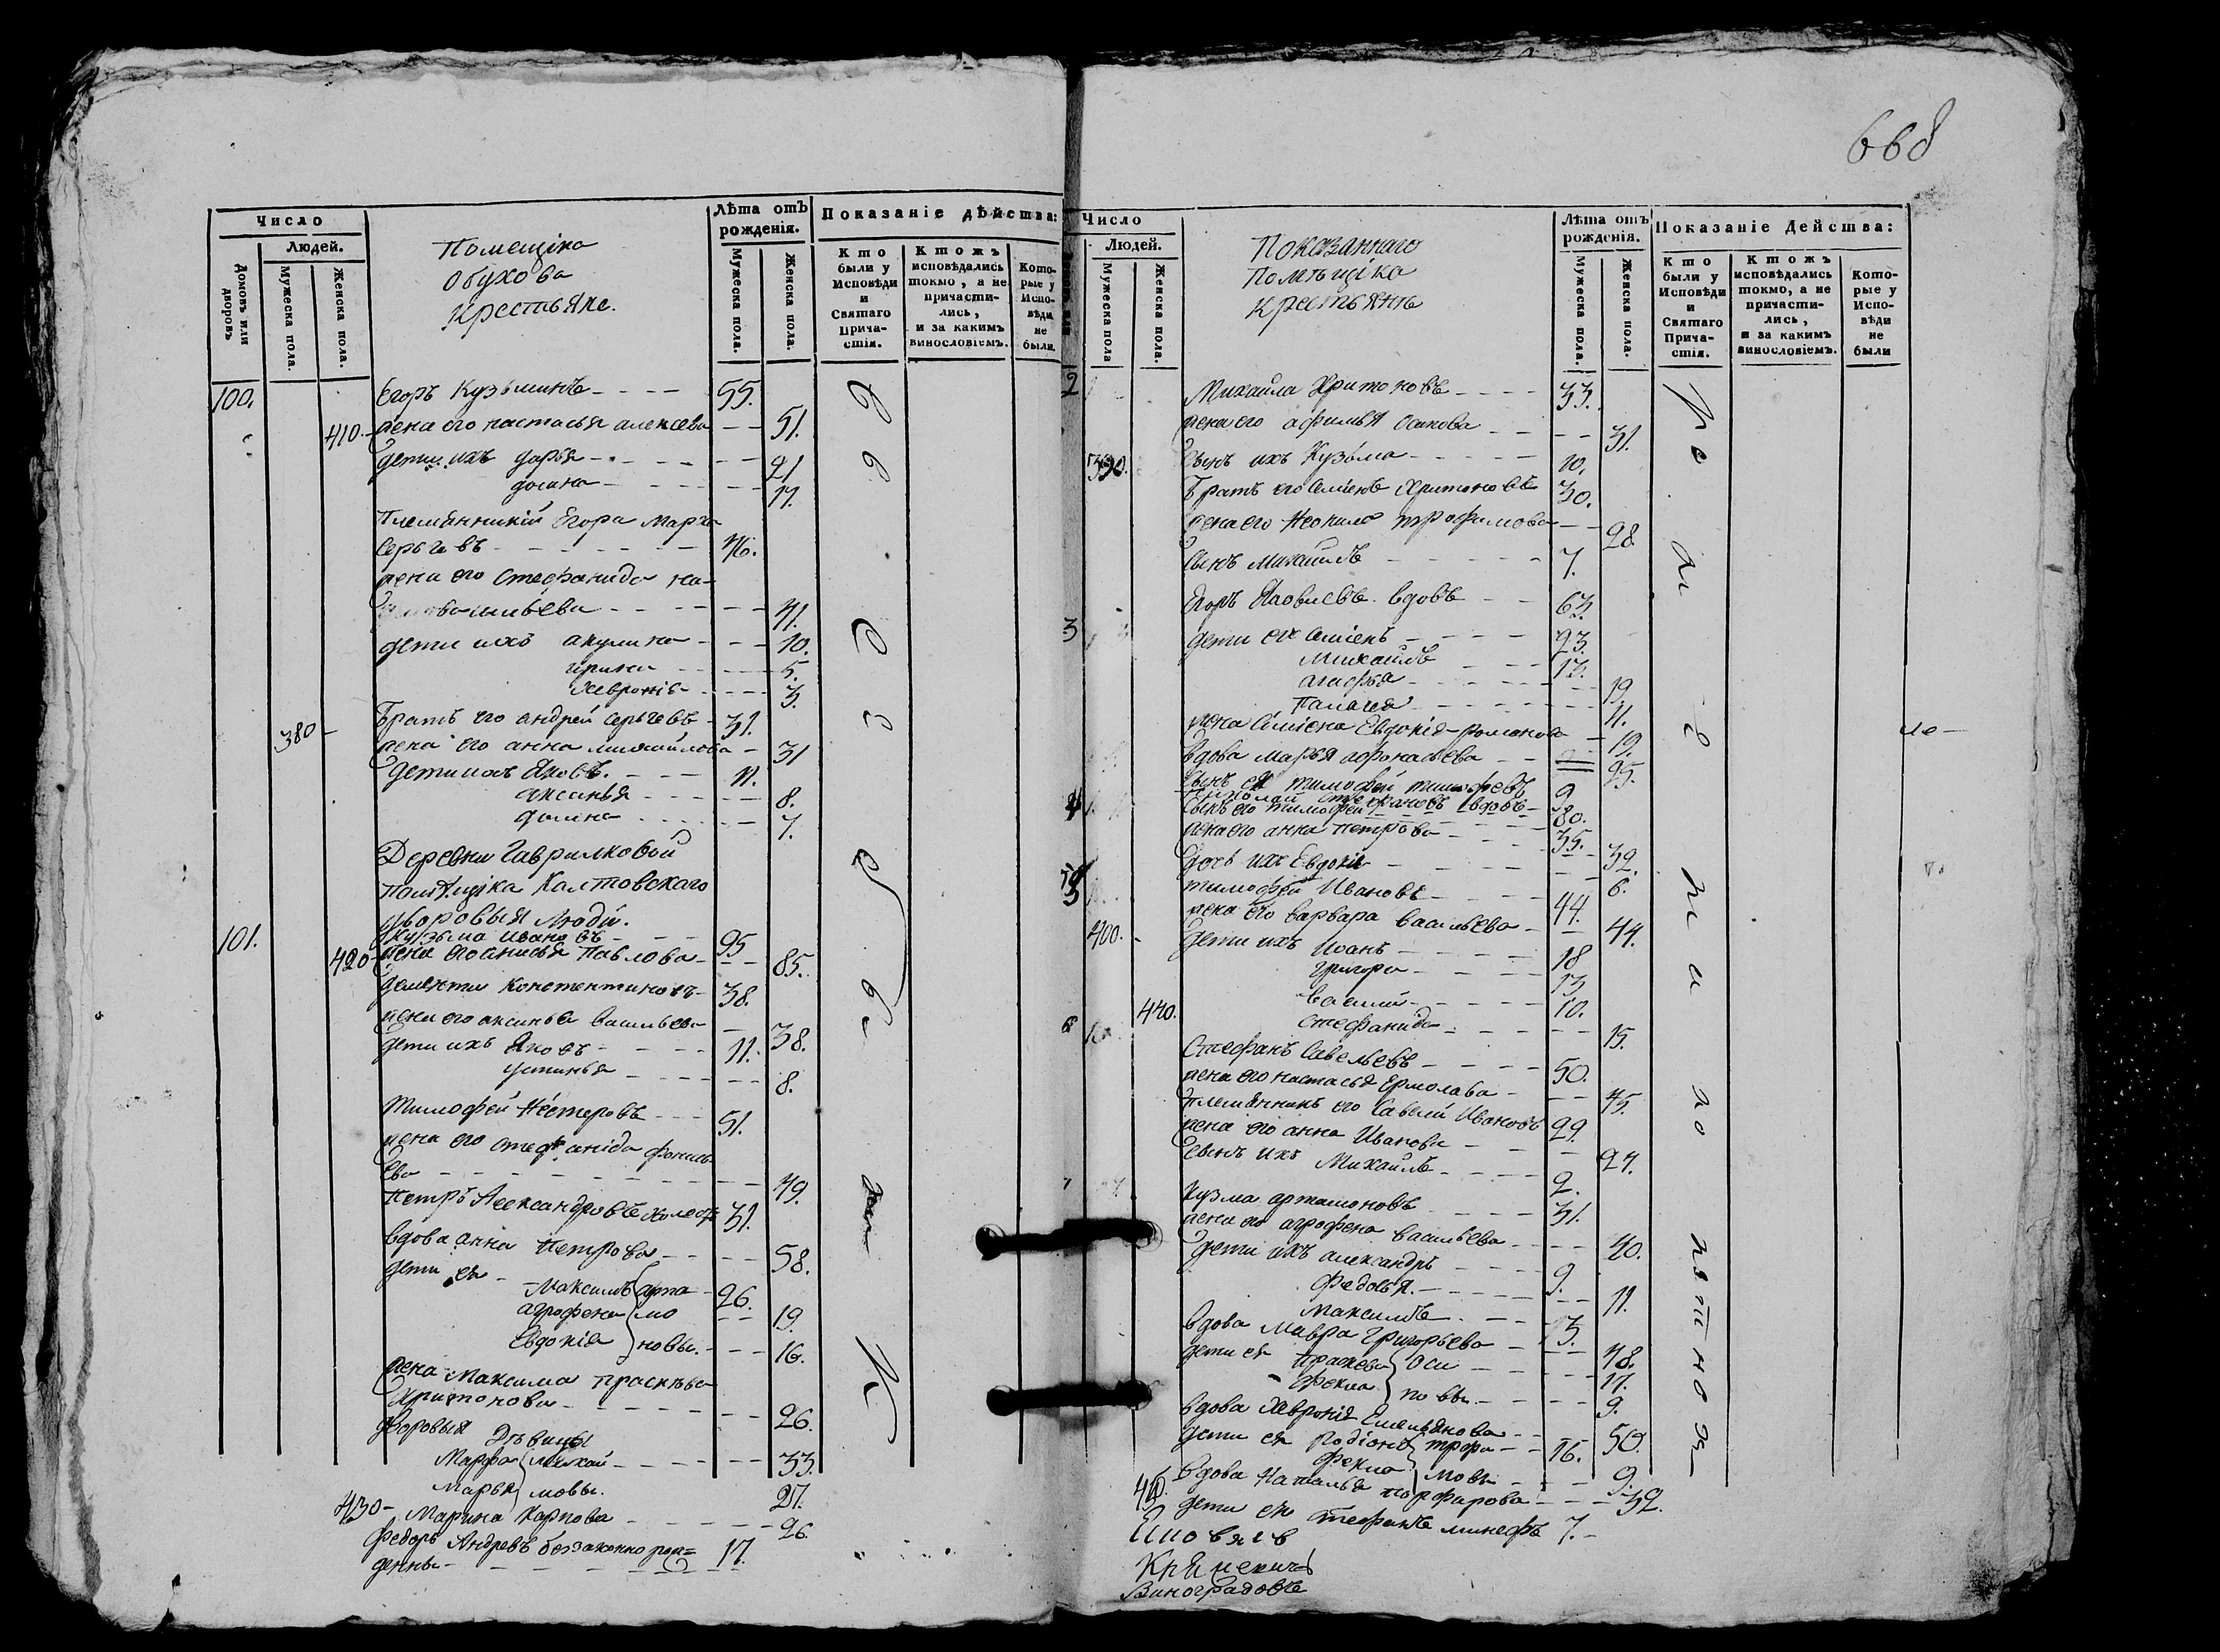 668
Число
Людей.
Домовъ или дворовъ
Мужеска пола.
Женска пола.
Помещика
Обухова
крестьяне.
Лѣта отъ рожденія.
Мужеска пола.
Женска пола.
Показаніе дѣйства:
Кто были у Исповѣди и Святаго Причастія.
Ктожъ исповѣдались токмо, а не причастились, и за какимъ винословіемъ.
Которые у Исповѣди не были.
100. Егоръ Кузьминъ 55.
410. жена его настасья алексева 51.
дети ихъ дарья 21
домна 17.
Племянникъ Егора Марко
Сергеевъ 46.
жена его Стефанида
41.
дети ихъ акулина 10.
ирина 5.
Хевронія 3.
380 Братъ его андрей Сергеевъ 31.
жена его анна михайлова 31
дети ихъ Яковъ. 11.
аксинья 8.
домна 7.
Деревни Гаврилковой
помѣщика Калтовскаго
дворовыя люди.
101. кузьма ивановъ 95
420 жена его анисья Павлова 85.
дементи константиновъ 38.
жена его аксинья васильева 38.
дети ихъ Яковъ 11.
устинья 8.
Тимофей Нестеровъ 51.
жена его стефанида
ева 49.
Петръ Александровъ холостъ 31.
вдова анна Петрова 58.
дети ея Максимъ арта 26.
агрофена мо 19.
Евдокія новы. 16.
жена Максима прасковья
Харитонова 26.
дворовыя Дѣвицы
Марфа михай 33.
марья ловы. 27.
430 Марина Карпова 26
Федоръ Андревъ беззаконно рож=
денны 17.
Число
Людей.
Мужеска пола
Женска пола.
Показаннаго
Помѣщика
крестьянѣ
Лѣта отъ рожденія.
Мужеска пола.
Женска пола.
Показаніе Дейсmва:
Кто были у Исповѣди и Святаго Причастія.
Ктожъ исповѣдались токмо, а не причастились, и за какимъ винословіемъ.
Которые у Исповѣди не были
2 Михайла Харитоновъ 33.
жена его афимья Осипова 31.
390. Сынъ ихъ Кузьма 10.
Братъ его Семенъ Харитоновъ 30.
жена его Неонила трофимова 28.
Сынъ михаилъ 7.
3 Егоръ Яковлевъ вдовъ 63.
дети его Семенъ 23.
Михаилъ 13.
агафья 19.
Палагея 11.
жена Семена Евдокія романова 19.
вдова марья афонасьева 25.
Сынъ ея тимофей тимофевъ 9
4 стефановъ вдовъ 80.
Сынъ его тимофей 35.
жена его анна петрова 32.
дочь ихъ Евдокія 6.
5 тимофей Ивановъ 44.
жена его варвара васильева 44.
400. дети ихъ Иванъ 18
григори 13
васили 10.
440. стефанида 15.
6 Стефанъ Савельевъ 50.
жена его настасья Ермолаева 45.
племянникъ его Савели Ивановъ 29.
жена его анна Иванова 24.
сынъ ихъ Михаилъ 2.
7 Кузма артамоновъ 31.
жена его агрофена васильева 40.
дети ихъ александръ 9.
Федосья. 11.
максимъ 3.
вдова Мавра Григорьева 48.
дети ея Прасковья Оси 17.
Фекла повы 9.
вдова Хевронія Емельянова 50.
дети ея Родіонъ трофи 16.
Фекла мовы 9.
вдова Наталья порфирова 32.
дети ея Стефанъ 7.
Виноградовъ